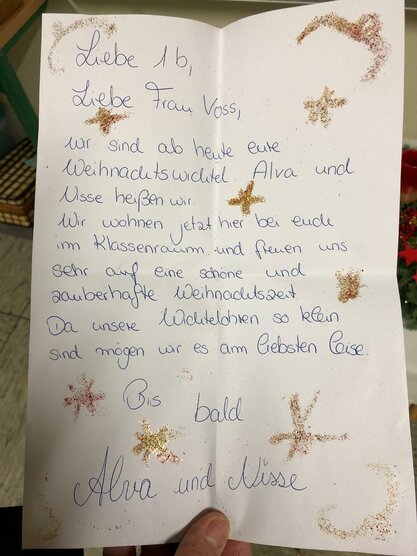 Liebe 1b,
Liebe Frau Voss,
wir sind ab heute eure
Weihnachtswichtel. Alva und
Nisse heißen wir.
Wir wohnen jetzt hier bei euch
im Klassenraum und freuen uns
sehr auf eine schöne und
zauberhafte Weihnachtszeit.
Da unsere Wichtelohren so klein
sind mögen wir es am liebsten leise.
Bis bald
Alva und Nisse